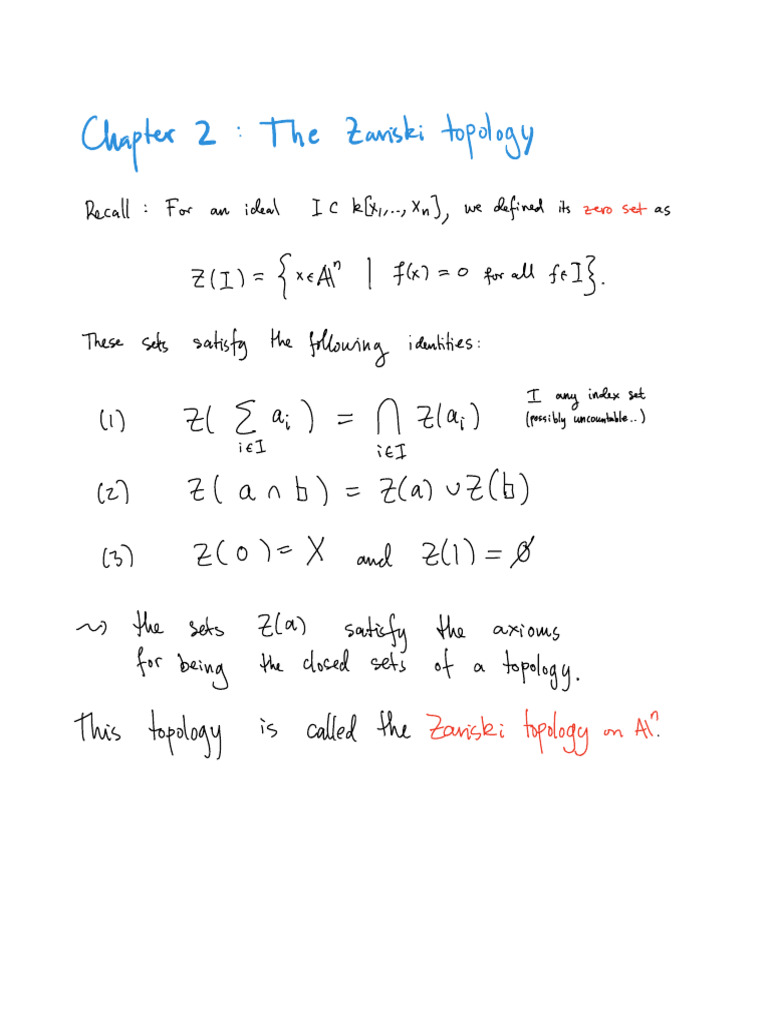 Chapter 2 : The Zariski topology
Recall : For an ideal I ⊂ k[x₁,..,xₙ], we defined its zero set as
Z(I) = { x∈𝔸ⁿ | f(x) = 0 for all f∈I}.
These sets satisfy the following identities:
(1) Z( ∑ aᵢ ) = ⋂ Z(aᵢ) I any index set
i∈I i∈I (possibly uncountable..)
(2) Z( a ∩ b ) = Z(a) ∪ Z(b)
(3) Z( 0 ) = X and Z(1) = ∅
⇝ the sets Z(a) satisfy the axioms
for being the closed sets of a topology.
This topology is called the Zariski topology on 𝔸ⁿ.